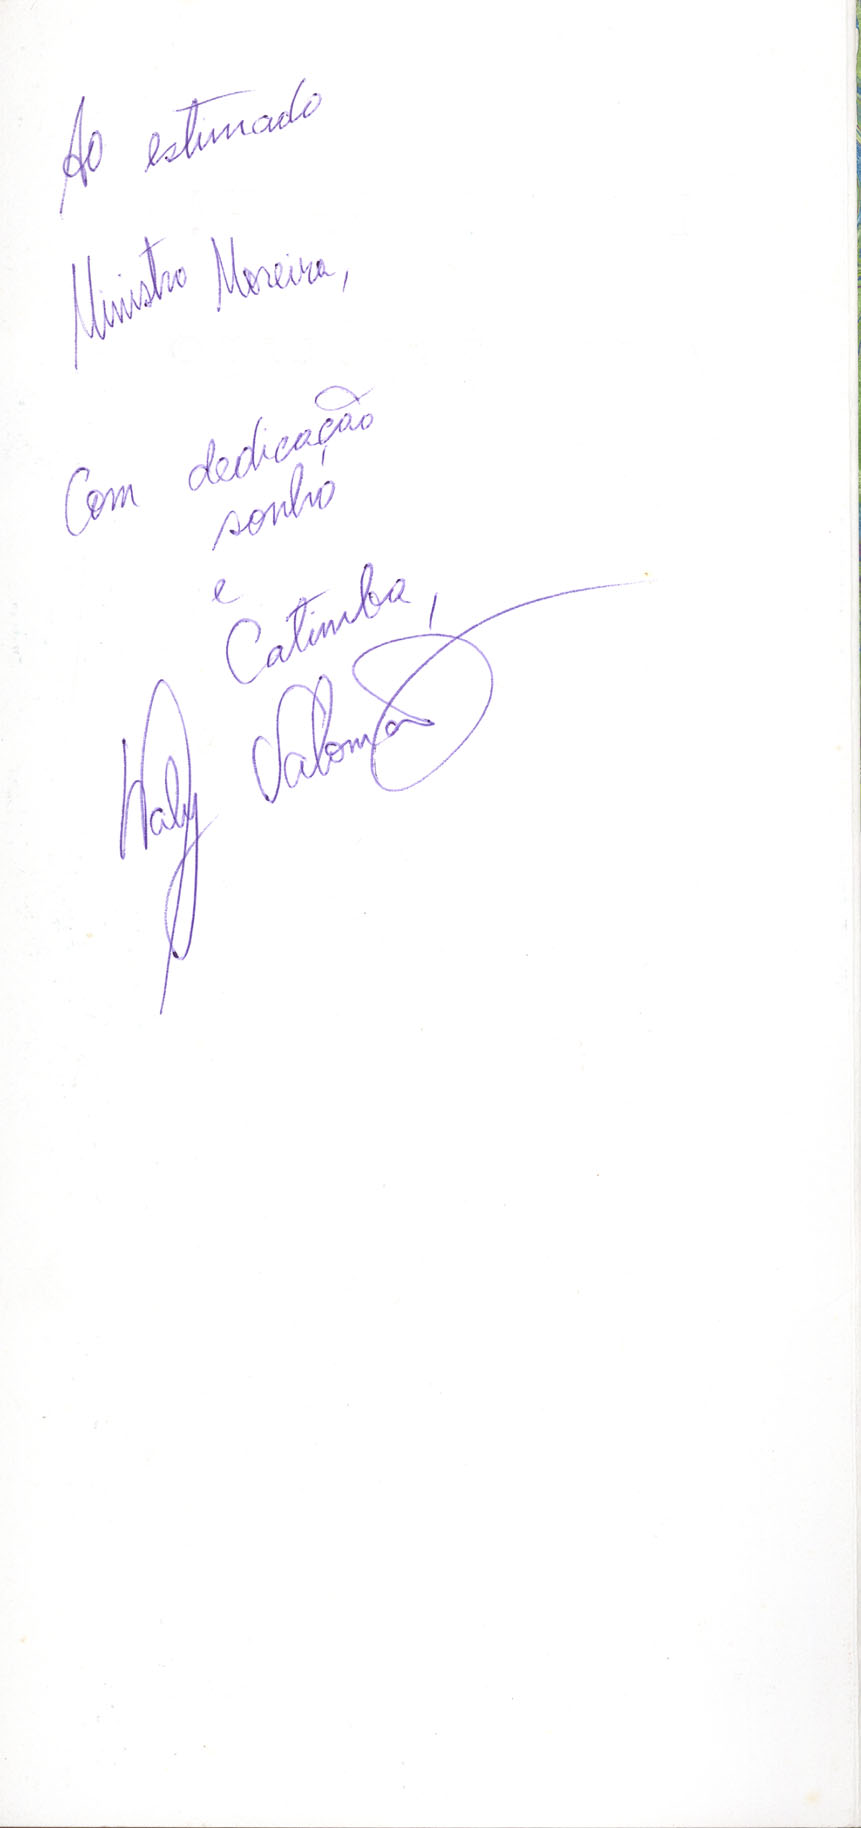 Ao estimado
Ministro Moreira,
Com dedicação
sonho
e
Catimba,
Waly Salomão